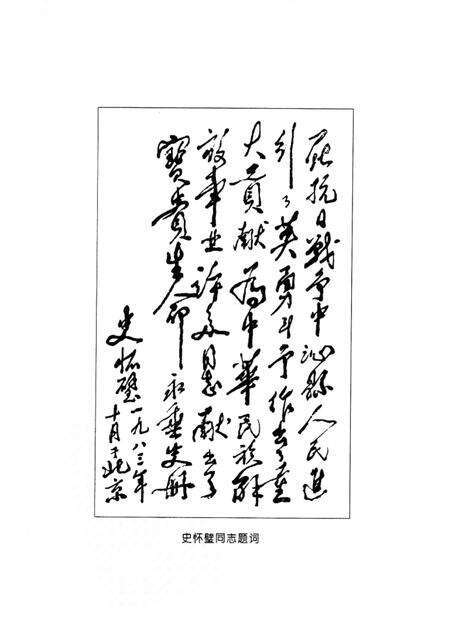 在抗日戰争中沁縣人民進
行了英勇斗争作出了重
大貢献為中華民族解
放事业许多同志献出了
寶貴生命永垂史册
史怀璧一九八三年
十月于北京
史怀璧同志题词